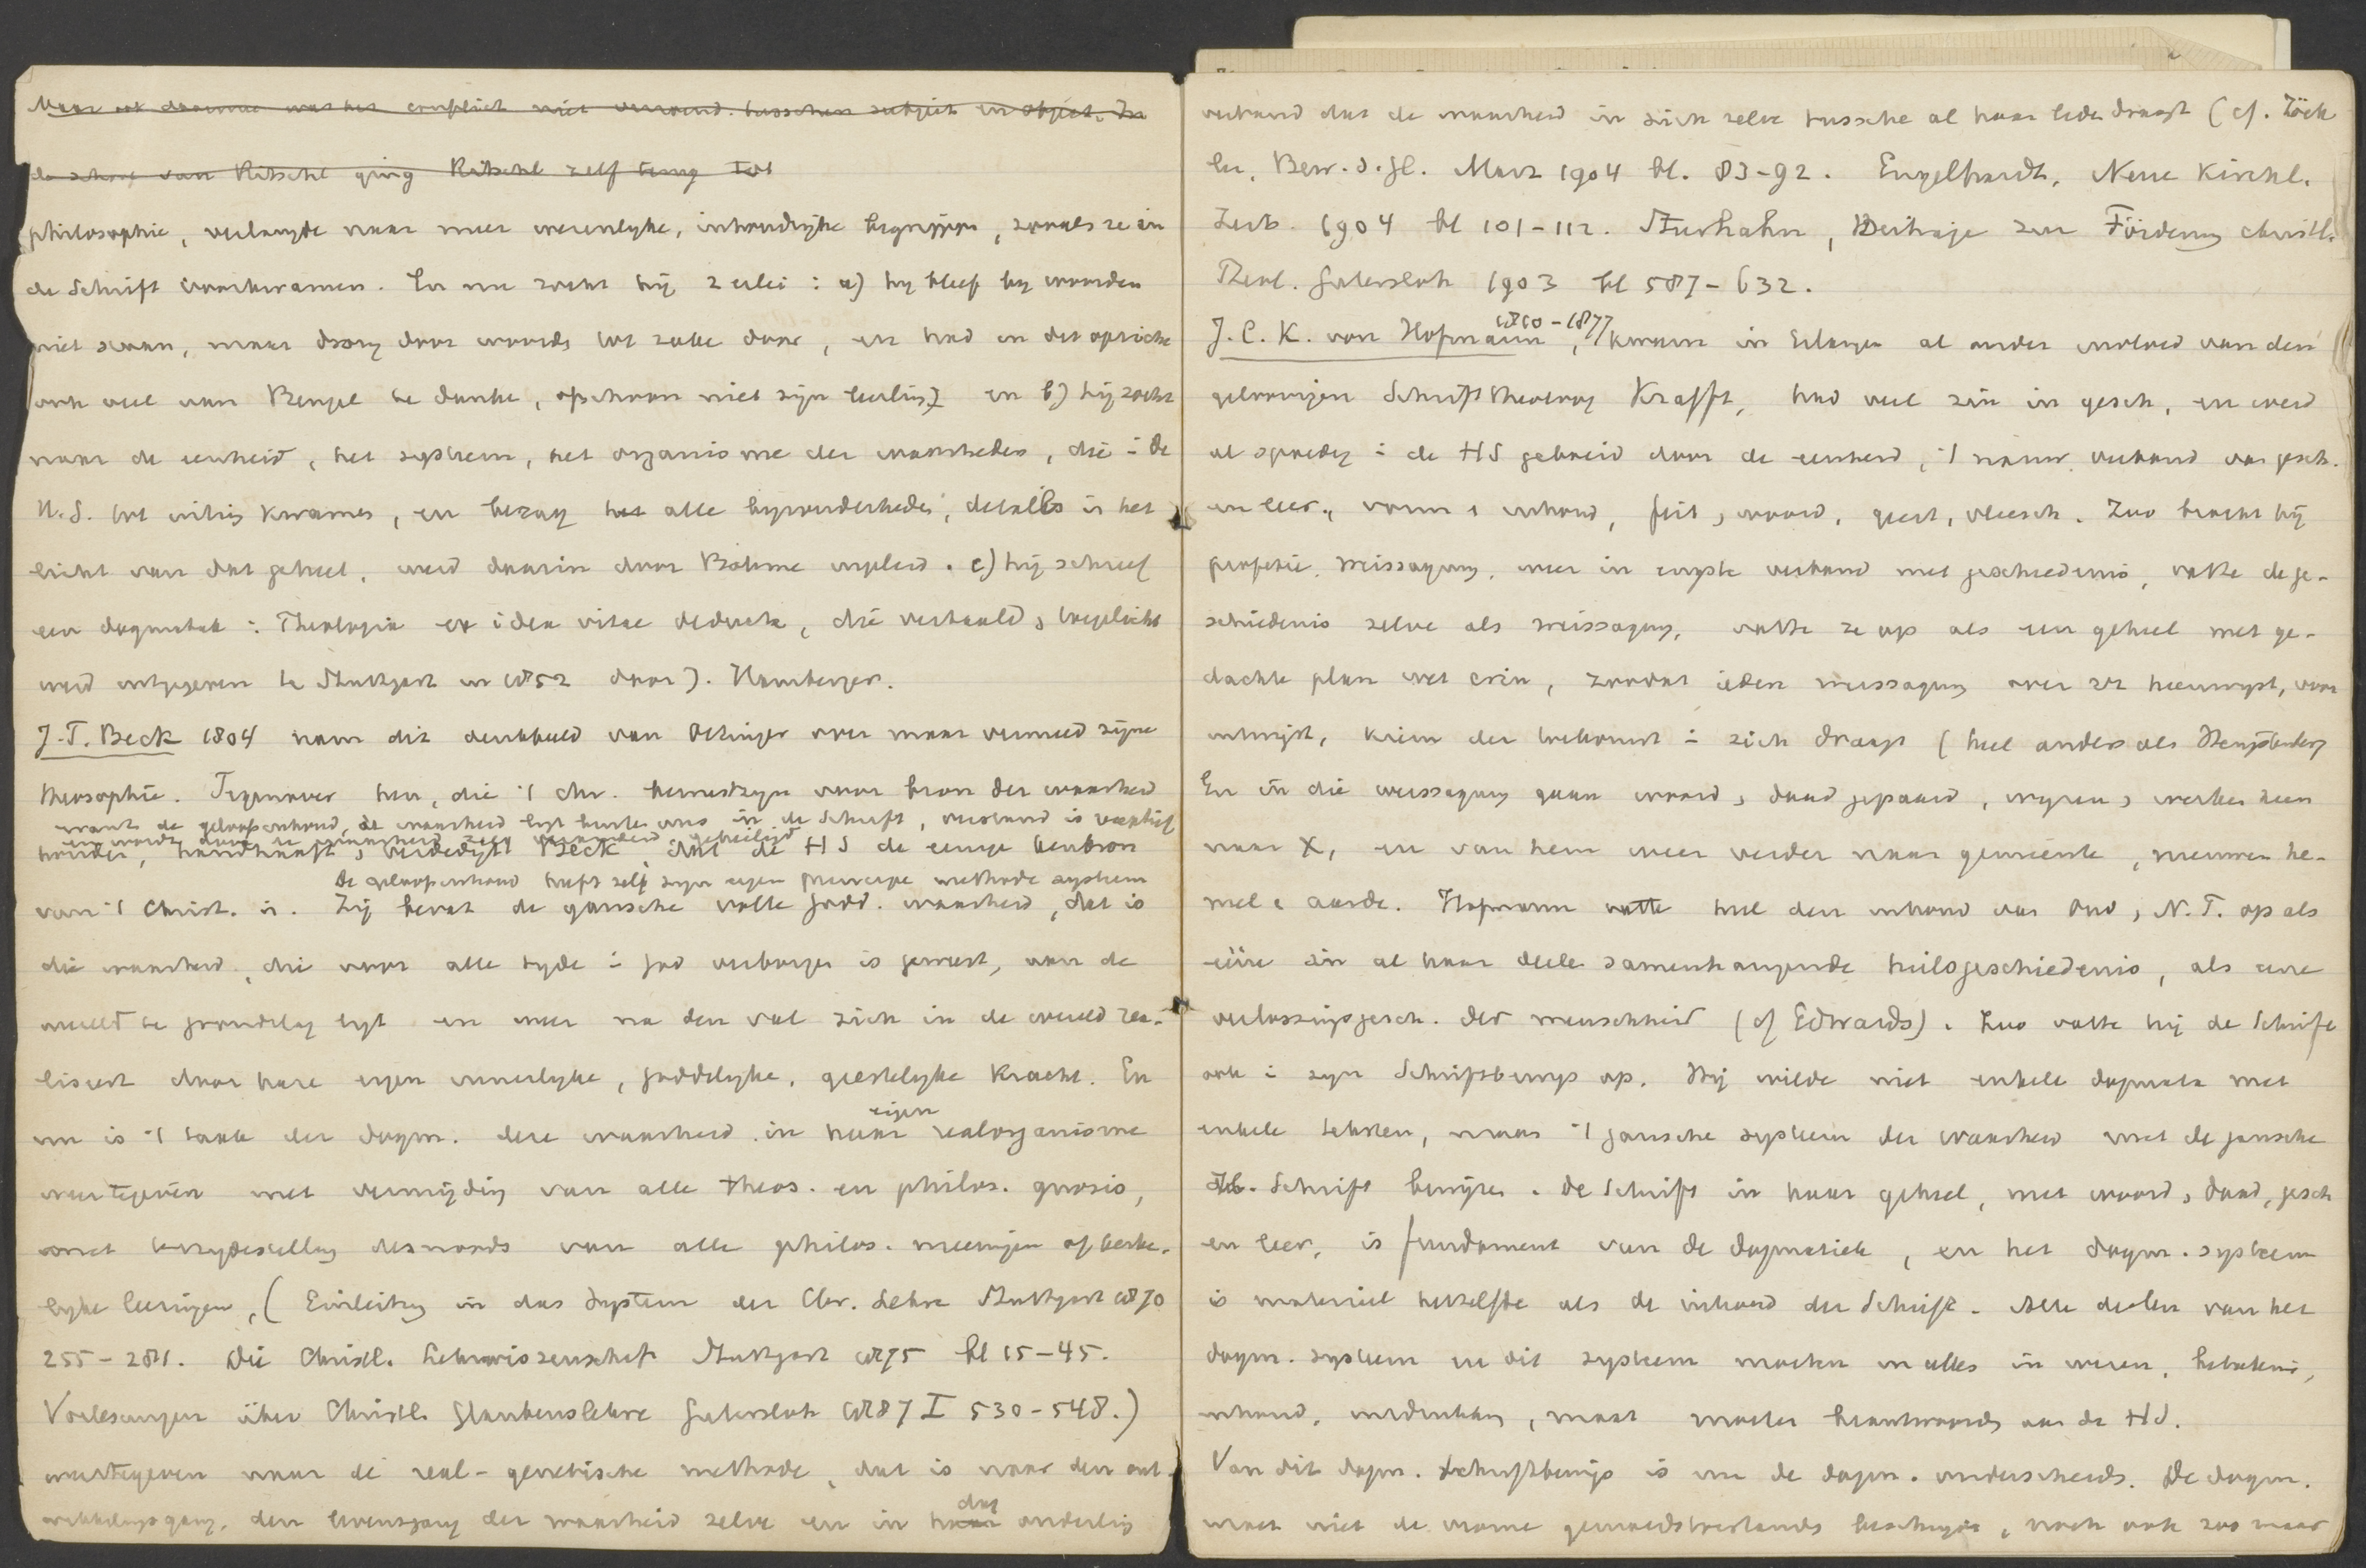 Maar ook daarmee was het conflict niet verzoend tusschen subject en object. In
de school van Ritschl ging Ritschl zelf terug tot
philosophie, verlangde naar meer wezenlyke, inhoudrijke begrippen, zooals ze in
de Schrift voorkwamen. En nu zocht hij 2 erlei : a) hy bleef by woorden
niet staan, maar drong door woorden tot zake door, en had in dit opzicht
ook veel aan Bengel te danke, ofschoon niet zijn leerling en b) hij zocht
naar de eenheid, het systeem, het organisme der waarheden, die i de
H.S. tot uiting kwamen, en bezag het alle byzonderheden, details in het
licht van dat geheel, werd daarin door Böhme versterkt. c) hij schreef
een dogmatiek : Theologia ex idea vitae deducta, die vertaald, toegelicht
werd uitgegeven te Stuttgart in 1852 door J. Hamberger.
J.T. Beck 1804 nam dit denkbeeld van Oetinger over maar vermeed zijne
theosophie. Tegenover hen, die 't chr. bewustzyn voor bron der waarheid
want de geloofsinhoud, de waarheid ligt buiten ons in de Schrift, verstand is receptief
en wordt door de waarheid geheiligd
houden, handhaaft, verdedigt Beck, dat de HS de eenige kenbron
De geloofsinhoud heeft zelf zyn eigen principe methode systeem
van 't Christ. is. Zij bevat de gansche volle godd. waarheid, dat is
die waarheid, die voor alle tyde i God verborgen is geweest, aan de
wereld te grondslag ligt en weer na den val zich in de wereld rea-
liseert door hare eigen innerlyke, goddelyke, geestelyke kracht. En
nu is 't taak der dogm. deze waarheid in haar eigen realorganisme
weertegeven met vermijding van alle theos. en philos. gnosis,
met terzydestelling desnoods van alle philos. meeningen of kerke-
lyke leeringen, (Einleitung in das System der Chr. Lehre Stuttgart 1870
255-281. Die Christl. Lehrwissenschaft Stuttgart 1875 bl 15-45.
Vorlesungen über Christl. Glaubenslehre Gütersloh 1887 I 530-548.)
weertegeven naar de real-genetische methode, dat is naar den ont-
wikkelingsgang, den levensgang der waarheid zelve en in haar dat onderling
verband dat de waarheid in zich zelve tussche al haar lede draagt (cf. Zöck
ler, Bew. d. Gl. Marz 1904 bl. 83-92. Engelhardt, Neue Kirchl.
Zeits. 1904 bl 101-112. Sturhahn, Beitrage zur Förderung christl.
Theol. Gutersloh 1903 bl 587-632.
J.C.K. von Hofmann, 1810-1877 kwam in Erlangen al onder invloed van den
geloovigen Schrifttheoloog Krafft, had veel zin in gesch, en werd
al spoedig i de HS geboeid door de eenheid, 't nauw verband van gesch.
en leer, vorm & inhoud, feit, woord, geest, vleesch. Zoo bracht hij
profetie, weissagung, weer in engste verband met geschiedenis, vatte de ge-
schiedenis zelve als weissagung, vatte ze op als een geheel met ge-
dachte plan wet erin, zoodat ieder weissagung over zich heenwyst, voor
uitwijst, kiem der toekomst i zich draagt (heel anders als Hengstenberg
En in die weissagung gaan woord, daad gepaard, wyzen, werken heen
naar X, en van hem weer verder naar gemeente, nieuwen he-
mel & aarde. Hofmann vatte heel den inhoud van Oud, N.T. op als
eéne in al haar deele samenhangende heilsgeschiedenis, als eene
verlossingsgesch. der menschheid (cf Edwards). Zoo vatte hij de Schrift
ook i zyn Schriftbeweis op. Hij wilde niet enkele dogmata met
enkele teksten, maar 't gansche systeem der waarheid met de gansche
H. Schrift bewijzen. De Schrift in haar geheel, met woord, daad, gesch
en leer, is fundament van de dogmatiek, en het dogm. systeem
is materieel hetzelfde als de inhoud der Schrift. Alle deelen van het
dogm. systeem en dit systeem moeten in alles in wezen, beteekenis,
inhoud, maat moeten beantwoorden aan de HS.
Van dit dogm. Schriftbewijs is nu de dogm. onderscheiden. De dogm.
moet niet de vrome gemoedstoestanden beschrijven, noch ook zoo maar